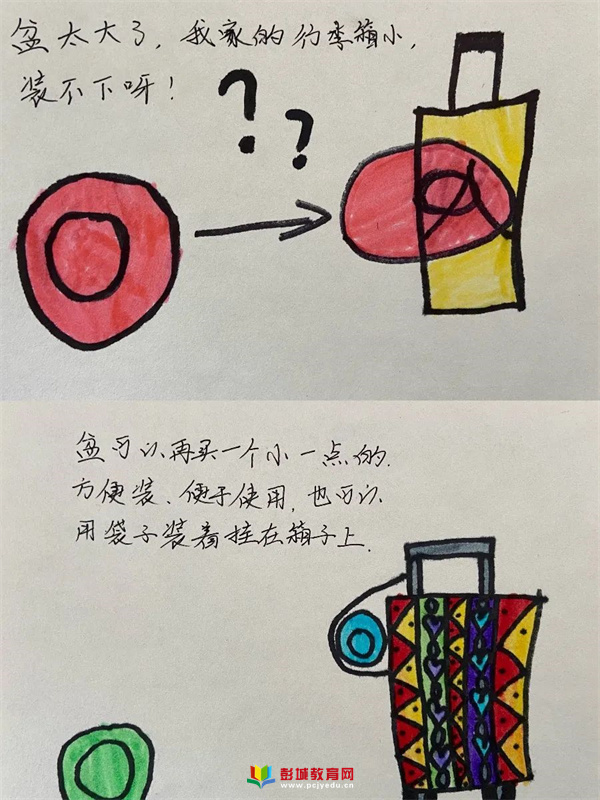 盆太大了，我家的行李箱小，
装不下呀！
？？
盆可以再买一个小一点的.
方便装、便于使用，也可以
用袋子装着挂在箱子上.
彭城教育网
www.pcjyedu.cn